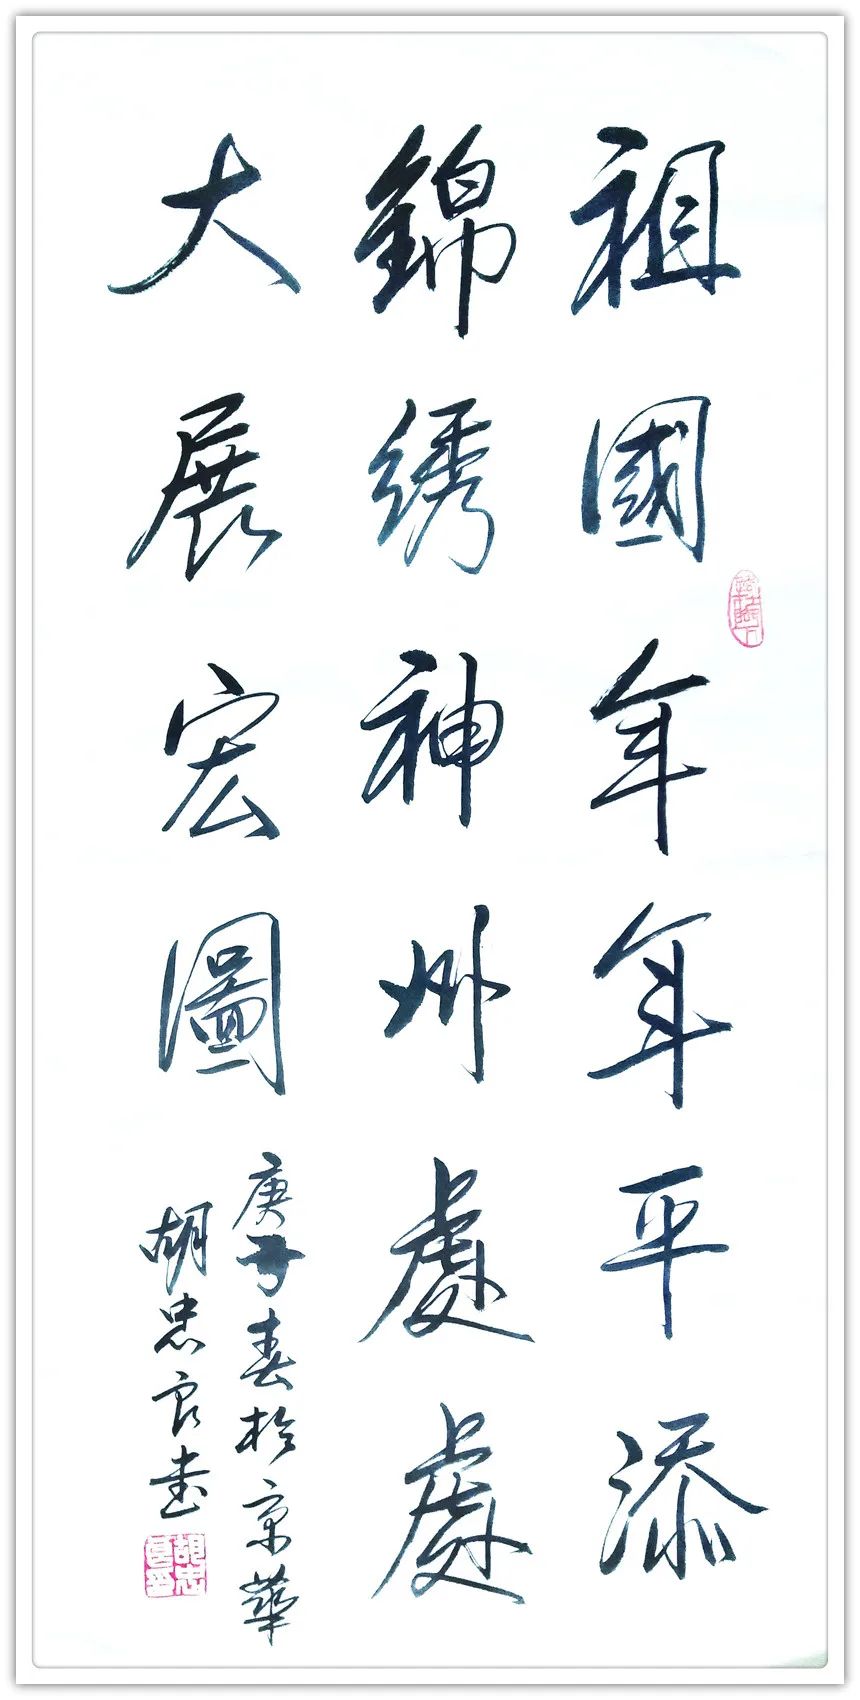 祖國年年平添
錦绣神州處處
大展宏圖
庚子春於京華
胡忠良书
胡忠良印